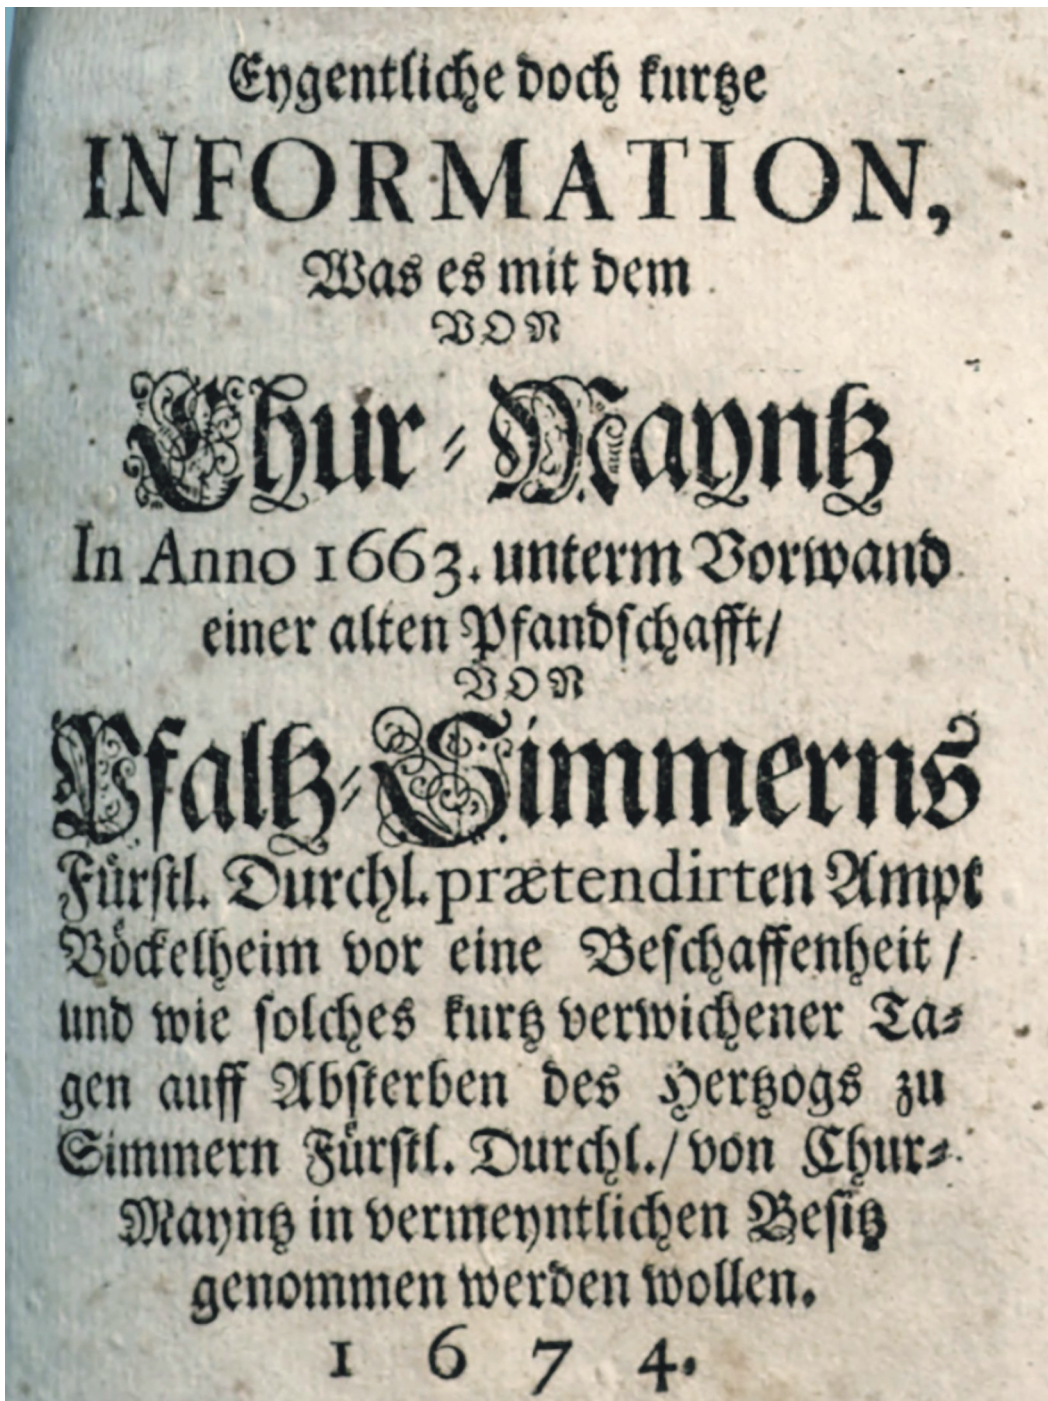 Eygentliche doch kurtze
INFORMATION,
Was es mit dem
VON
Chur-Mayntz
In Anno 1663. unterm Vorwand
einer alten Pfandschafft/
VON
Pfaltz-Simmerns
Fürstl. Durchl. prætendirten Ampt
Böckelheim vor eine Beschaffenheit /
und wie solches kurtz verwichener Ta-
gen auff Absterben des Hertzogs zu
Simmern Fürstl. Durchl./ von Chur-
Mayntz in vermeyntlichen Besitz
genommen werden wollen.
1 6 7 4.